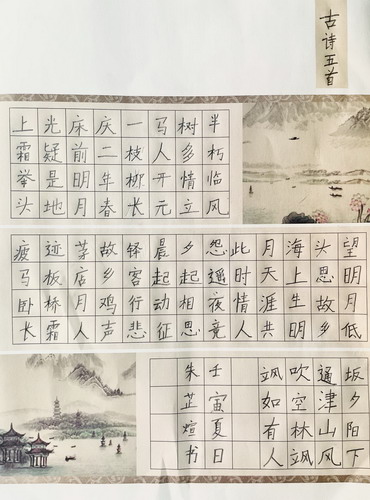 古诗五首
半朽临风
树多情立
马人开元
一枝柳长
庆二年春
床前明月
光疑是地
上霜举头
望明月低
头思故乡
海上生明
月天涯共
此时情人
怨遥夜竟
夕起相思
晨起动征
铎客行悲
故乡鸡声
茅店月人
迹板桥霜
疲马卧长
坂夕阳下
通津山风
吹空林飒
飒如有人
壬寅夏日
朱芷煊书